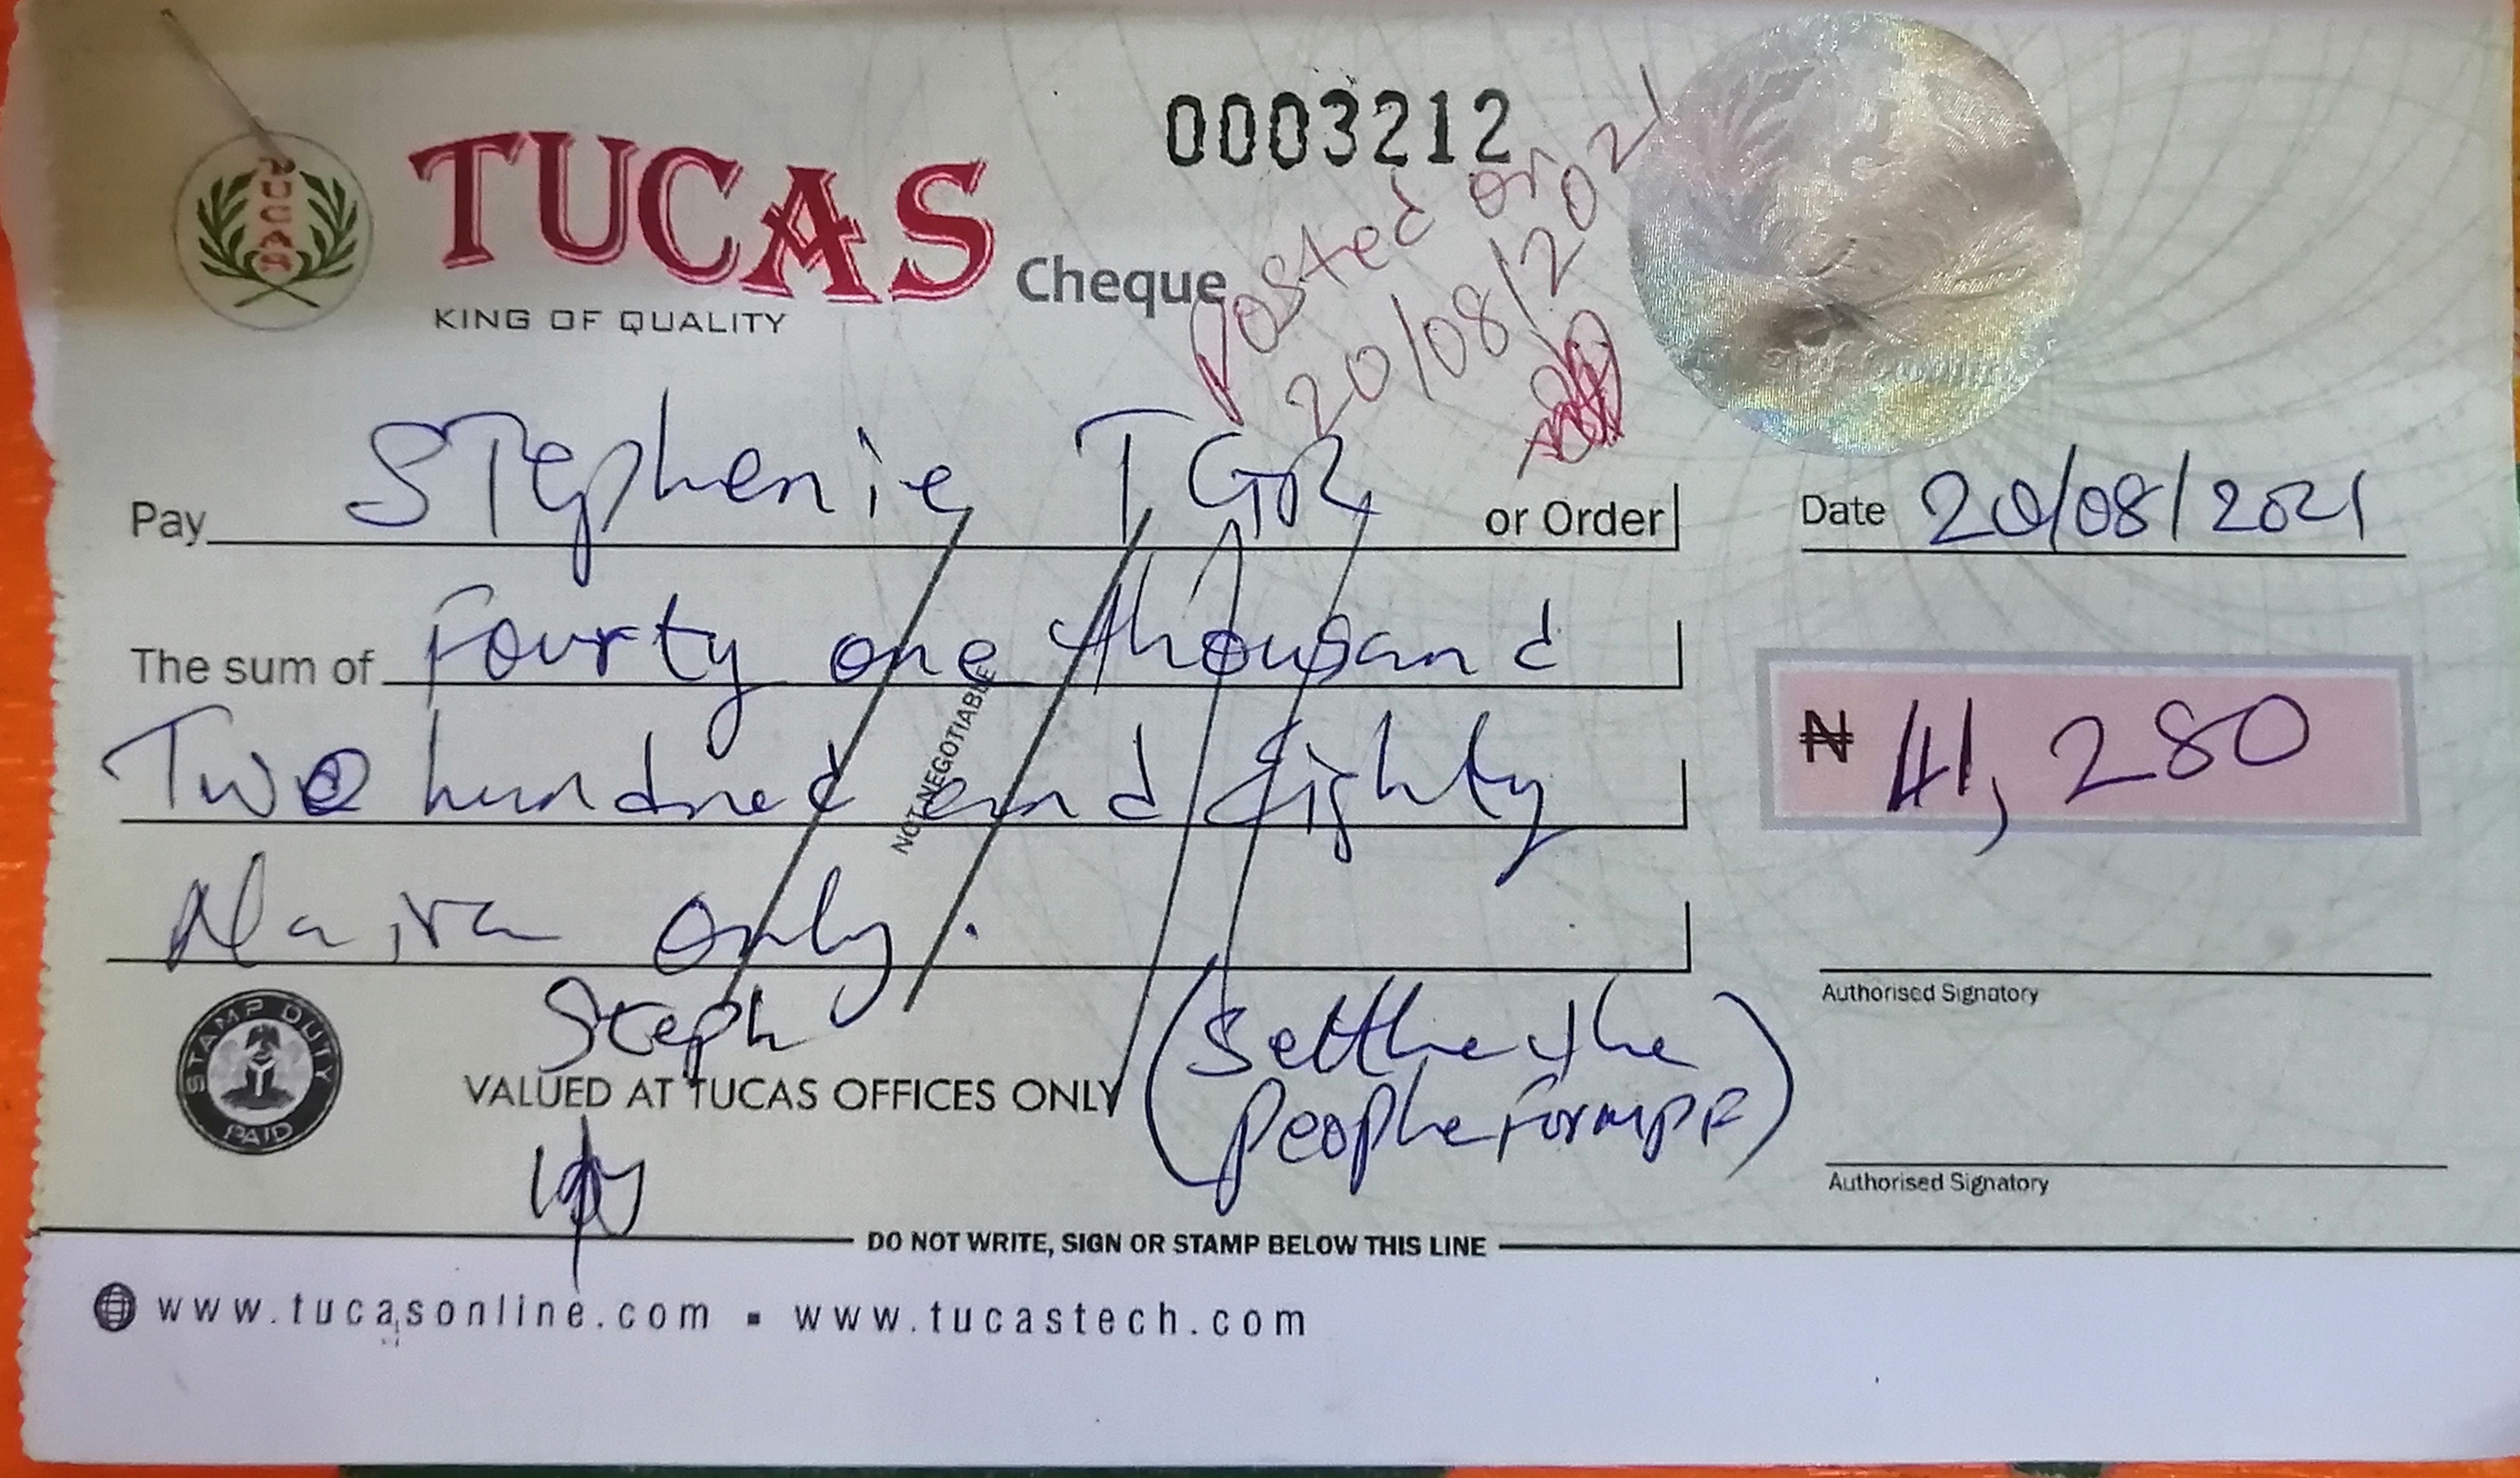 0003212
TUCAS
TUCAS Cheque
KING OF QUALITY
Posted on
20/08/2021
Pay Stephenie T GR or Order
Date 20/08/2021
The sum of Fourty one thousand
Two hundred and Eighty
₦ 41,280
Naira only.
NOT NEGOTIABLE
Authorised Signatory
STAMP DUTY
PAID
Steph
VALUED AT TUCAS OFFICES ONLY
(Settle the
People for MPF)
Authorised Signatory
DO NOT WRITE, SIGN OR STAMP BELOW THIS LINE
www.tucasonline.com ▪ www.tucastech.com